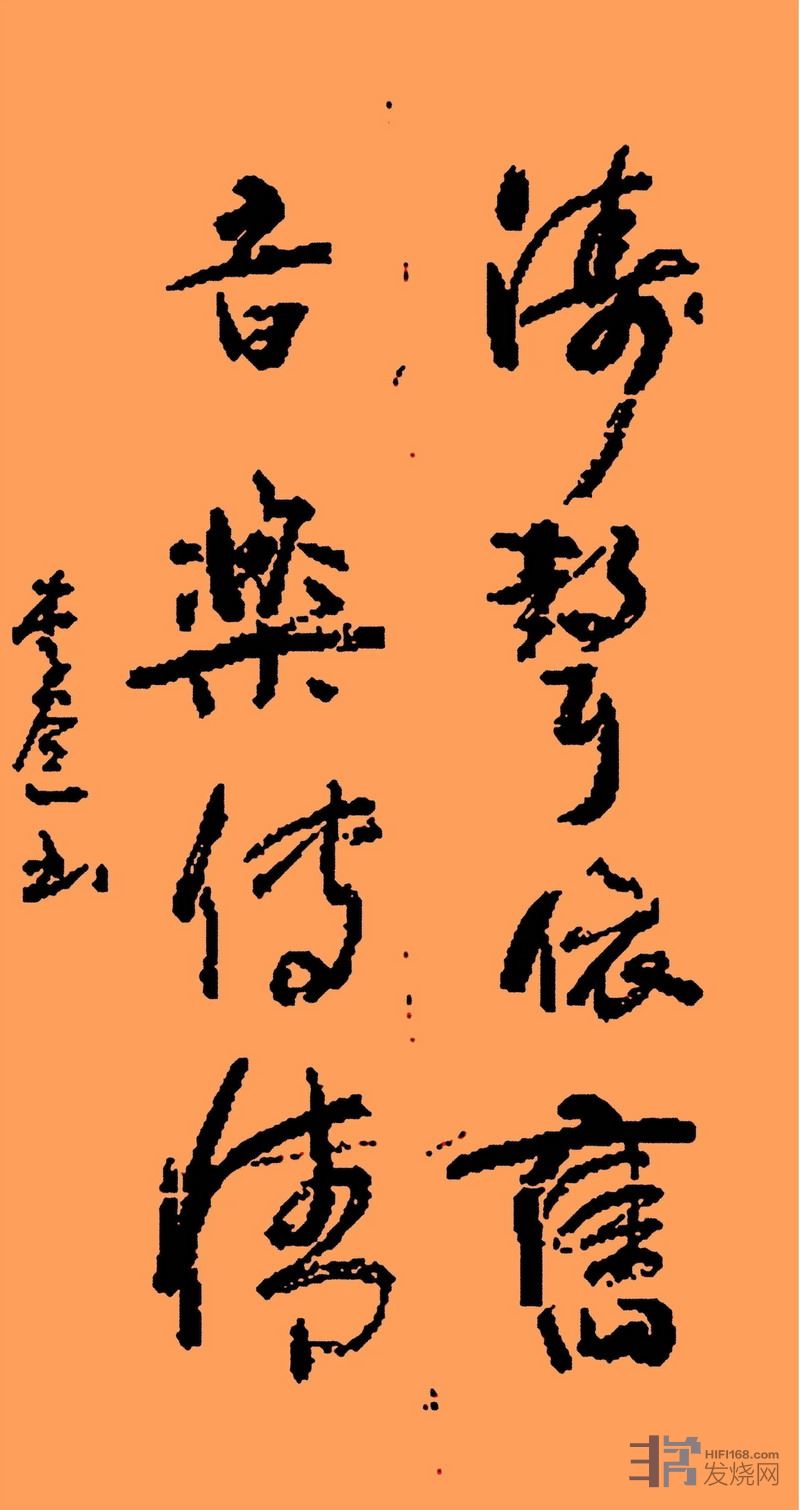 濤聲依舊
音樂傳情
李
書
HIFI168.com
发烧网